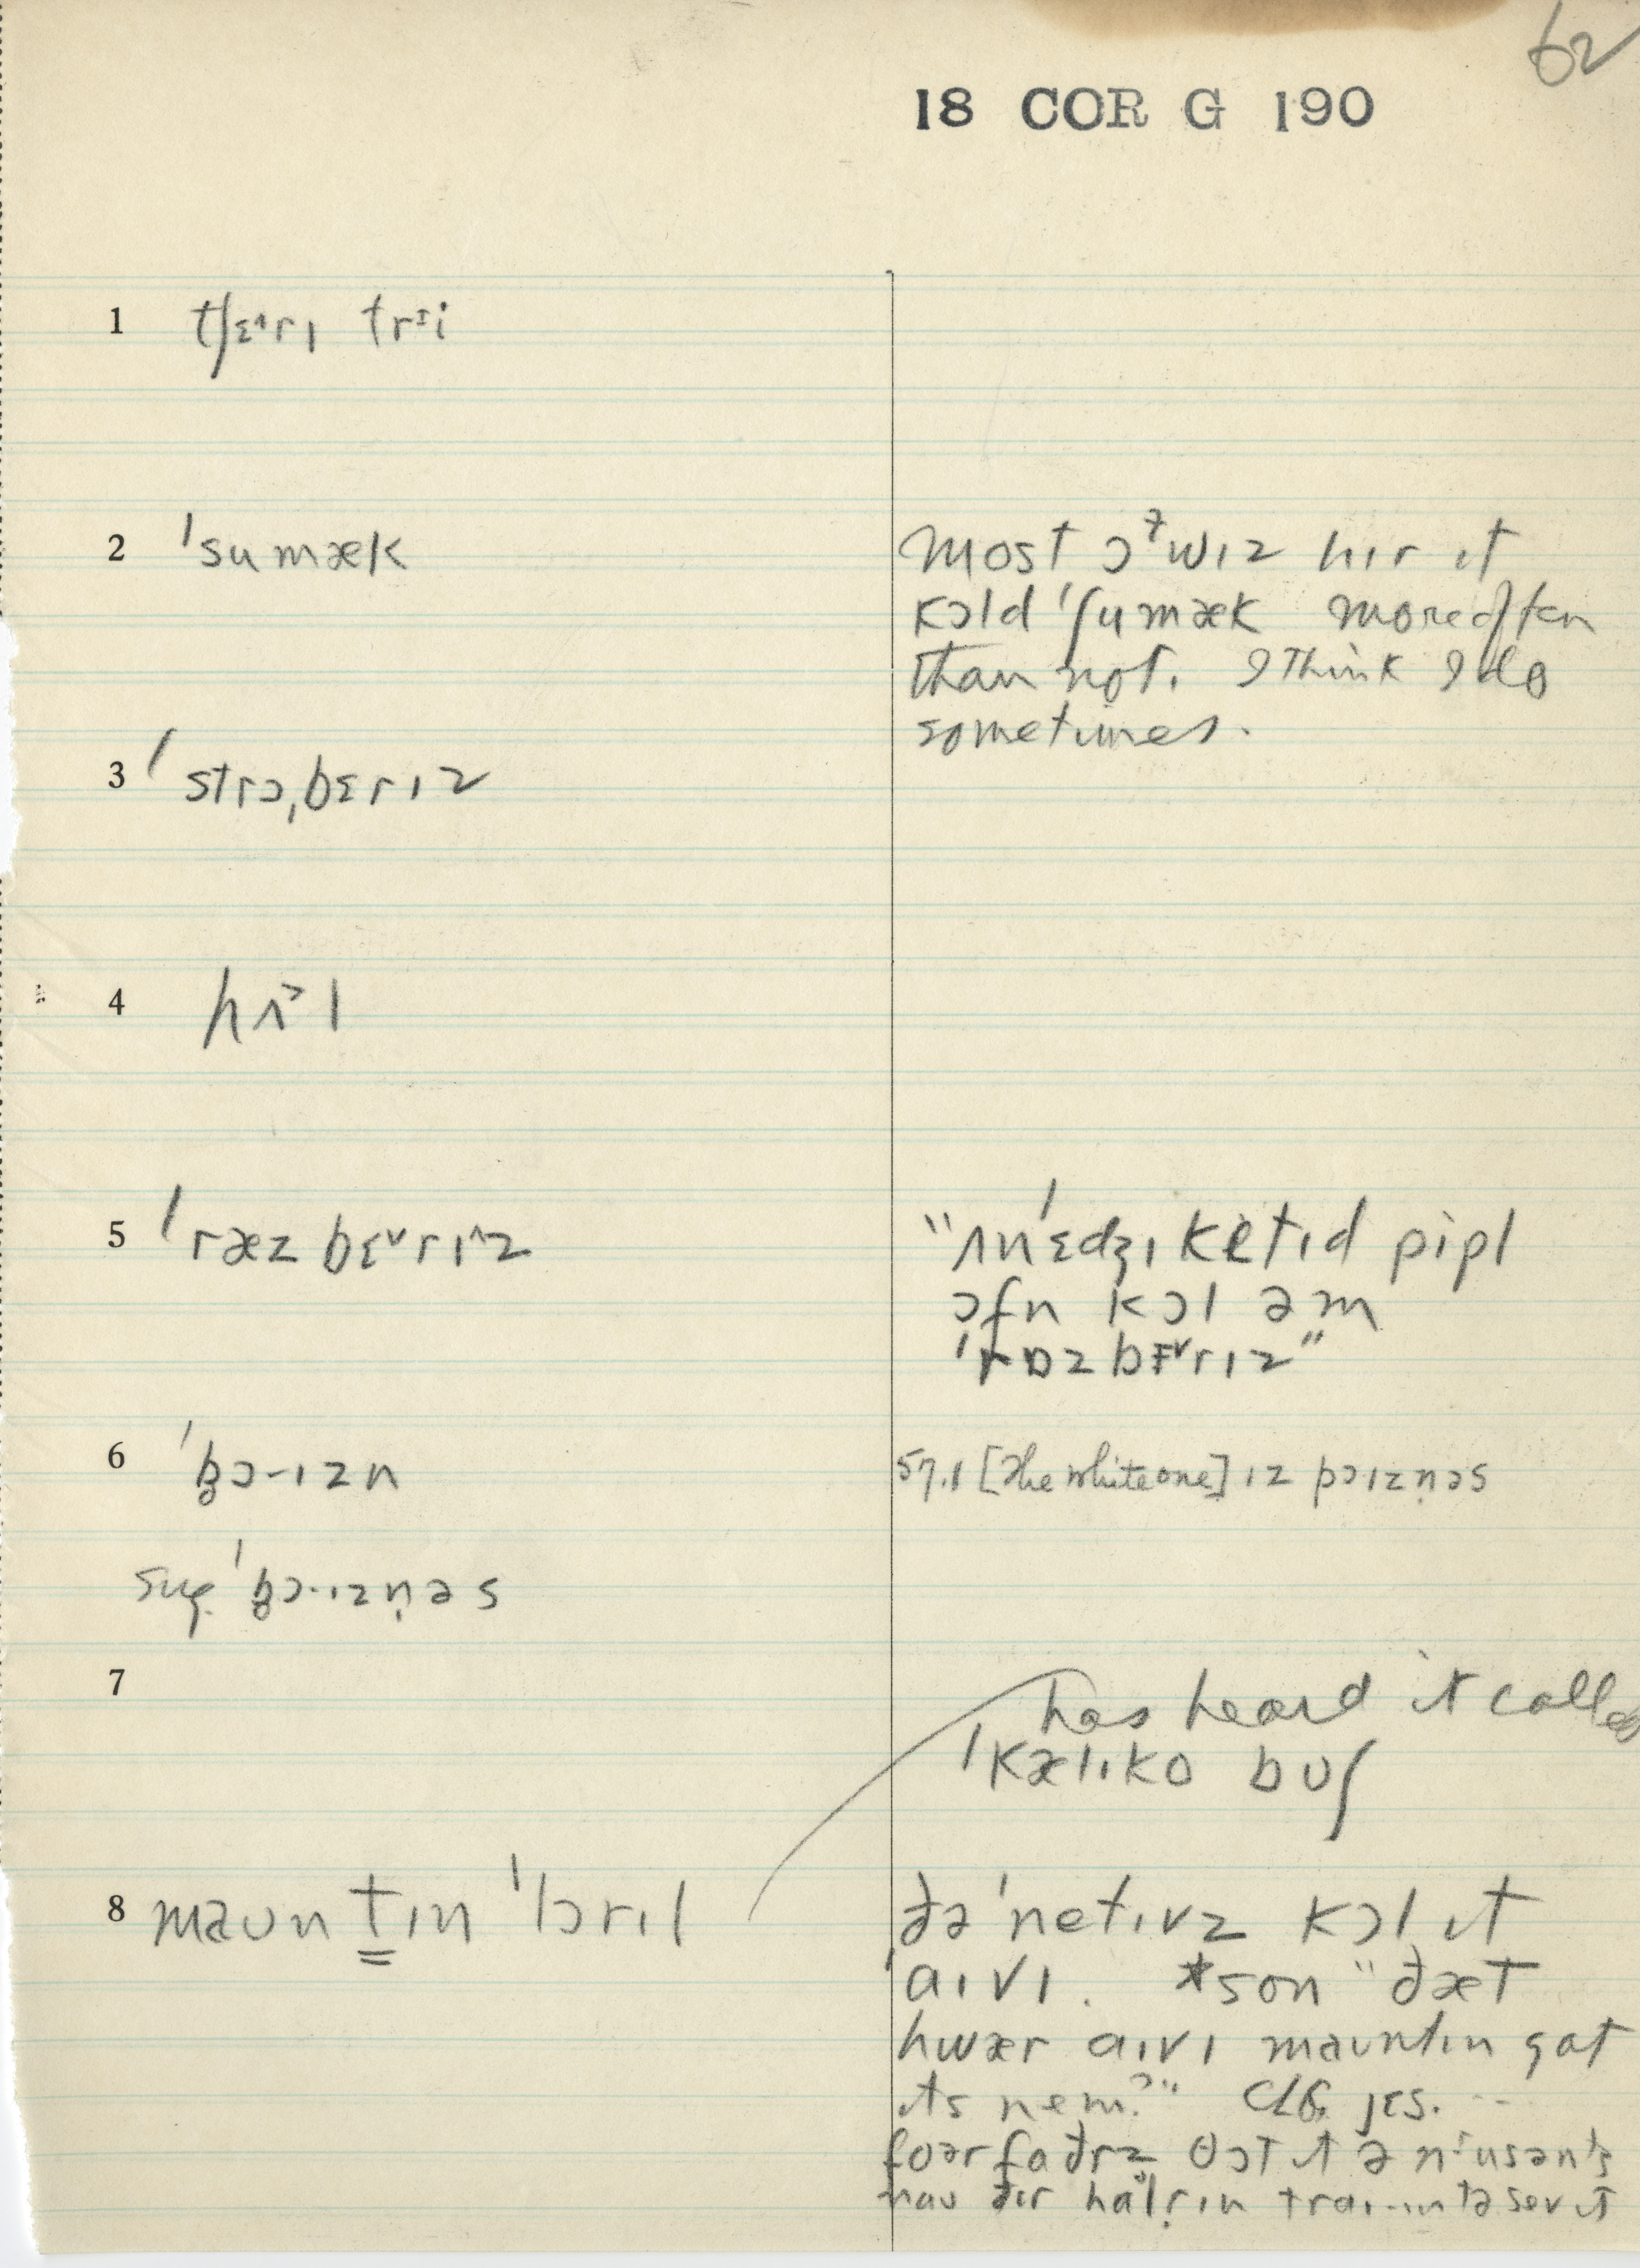 62
18 COR G 190
1 tʃɛ˄rɪ trɪi
2 ˈsumæk
most ɔwɪz hɪr ɪt
kɔld ˈʃumæk more often
than not. I think I do
sometimes.
3 ˈstrɔˌbɛrɪz
4 hʌ˃l
5 ˈræzbɛ˅rɪ˄z
"ʌnˈɛdʒɪketɪd pipl
ɔfn kɔl əm
ˈrɒzbɛ˅rɪz"
6 ˈb̥ɔ·ɪzn
57.1 [The white one] ɪz pɔɪzn̩əs
sug. ˈb̥ɔ·ɪzn̩əs
7
has heard it called
ˈkælɪko bʊʃ
8 maʊntɪn ˈlɔrɪl
ðə ˈnetɪvz kɔl ɪt
ˈaɪvɪ. *son "ðæt
hwær aɪvɪ maʊntɪn gat
ɪts nem?" CLG. jɛs.
foərfaðrz θɔt ɪt ə nɪusəns
naʊ ðɪr halrɪn traɪ·ɪn tə sev ɪt